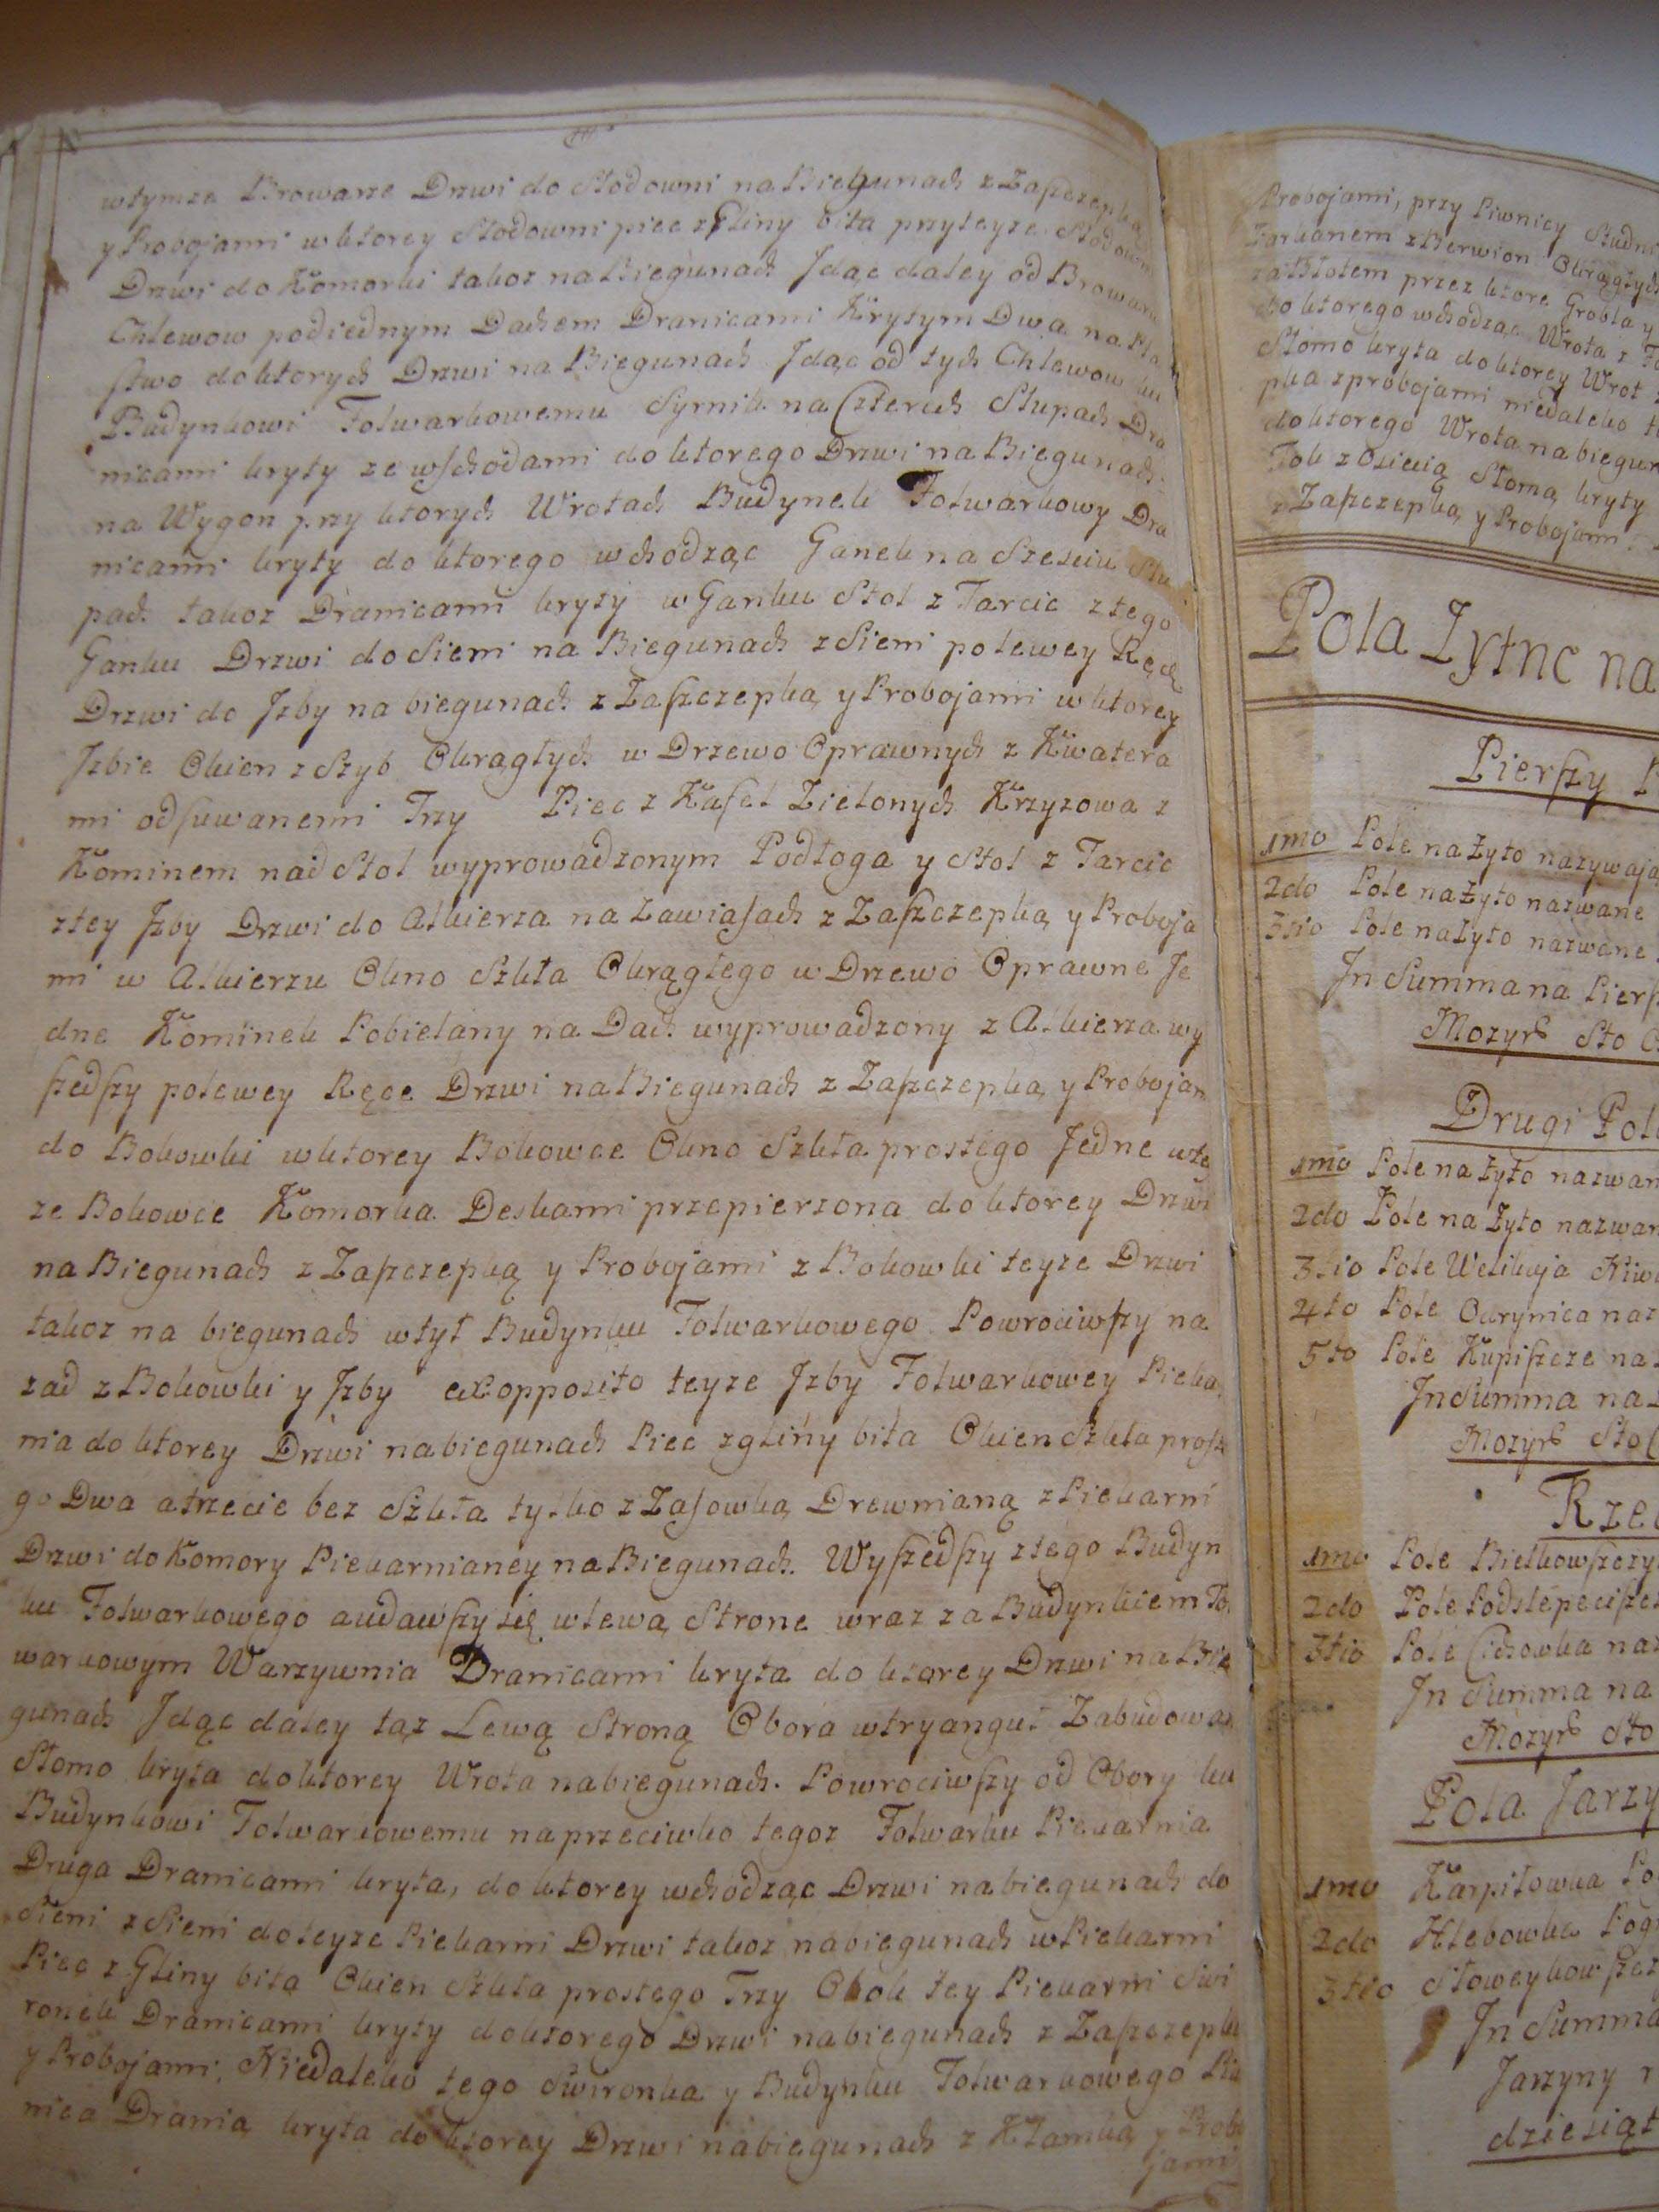 wtymze Browarze Drzwi do Słodowni na Biegunach z Zaszczepką
y Probojami w ktorey Słodowni piec z Gliny bita przyteyze Słodowni
Drzwi do Komorki takoz na Biegunach Jdąc daley od Browaru
Chlewow podiednym Dachem Dranicami Krytym Dwa na Pta
stwo doktorych Drzwi na Biegunach Jdąc od tych Chlewow ku
Budynkowi Folwarkowemu Syrnik na Czterech Słupach Dra
nicami kryty ze wschodami do ktorego Drzwi na Biegunach
na Wygon przy ktorych Wrotach Budynek Folwarkowy Dra
nicami kryty do ktorego wchodząc Ganek na Szesciu Słu
pach takoz Dranicami kryty w Ganku Stol z Tarcic z tego
Ganku Drzwi do Sieni na Biegunach z Sieni po lewey Ręce
Drzwi do Jzby na biegunach z Zaszczepką y Probojami w ktorey
Jzbie Okien z Szyb Okrągłych w Drzewo Oprawnych z Kwatera
mi odsuwanemi Trzy Piec z Kafel Zielonych Krzyzowa z
Kominem nad Stol wyprowadzonym Podłoga y Stol z Tarcic
ztey Jzby Drzwi do Alkierza na Zawiasach z Zaszczepką y Proboja
mi w Alkierzu Okno Szkła Okrągłego w Drzewo Oprawne Je
dne Kominek Pobielany na Dach wyprowadzony z Alkierza wy
szedszy polewey Ręce Drzwi na Biegunach z Zaszczepką y Probojam
do Bokowki wktorey Bokowce Okno Szkła prostego Jedne wte
ze Bokowce Komorka Deskami przepierzona do ktorey Drzwi
na Biegunach z Zaszczepką y Probojami z Bokowki teyze Drzwi
takoz na biegunach wtył Budynku Folwarkowego Powrociwszy na
zad z Bokowki y Jzby exopposito teyze Jzby Folwarkowey Pieka
nia do ktorey Drzwi na biegunach Piec zgliny bita Okien Szkła proste
go Dwa a trzecie bez Szkła tylko z Zasowką Drewnianą z Piekarni
Drzwi do Komory Piekarnianey na Biegunach. Wyszedszy ztego Budyn
ku Folwarkowego audawszy się wlewą Strone wraz za Budynkiem Fol
warkowym Warzywnia Dranicami kryta do ktorey Drzwi na Bie
gunach Jdąc daley tąz Lewą Stroną Obora wtryanguł Zabudowan
Słomo kryta do ktorey Wrota nabiegunach. Powrociwszy od Obory ku
Budynkowi Folwarkowemu naprzeciwko tegoz Folwarku Piekarnia
Druga Dranicami kryta, do ktorey wchodząc Drzwi nabiegunach do
Sieni z Sieni doteyze Piekarni Drzwi takoz nabiegunach wPiekarni
Piec z Gliny bita Okien Szkła prostego Trzy Obok tey Piekarni Swi
ronek Dranicami kryty doktorego Drzwi nabiegunach z Zaszczepką
y Probojami, Niedaleko tego Swironka y Budynku Folwarkowego Piw
nica Dranią kryta do ktorey Drzwi nabiegunach z Klamką y Probo
jami
Probojami, przy Piwnicy Studni
Zarkanem z Berwion Okrągłych
za Błotem przez ktore Grobla y
do ktorego wchodząc Wrota z
Słomo kryta do ktorey Wrot
pka z probojami niedaleko
do ktorego Wrota nabiegun
Tok z Osiecią Słomą kryty
z Zaszczepką y Probojami
Pola Żytne na
Pierszy
1mo Pole na Żyto nazywaja
2do Pole na Żyto nazwane
3tio Pole na Żyto nazwane
Jn Summa na Piersz
Mozyr Sto
Drugi Pol
1mo Pole na Żyto nazwan
2do Pole na Żyto nazwan
3tio Pole Welikaja Niw
4to Pole Ocrynica naz
5to Pole Kupiszcze na
Jn Summa na
Mozyr Sto
Rze
1mo Pole Bielkowszczy
2do Pole Podslepeciszcz
3tio Pole Cichowka naz
Jn Summa na
Mozyr Sto
Pola Jarzy
1mo Karpitowka Po
2do Hlebowka Pog
3tio Słoweykowszcz
Jn Summa
Jarzyny
dziesiąt